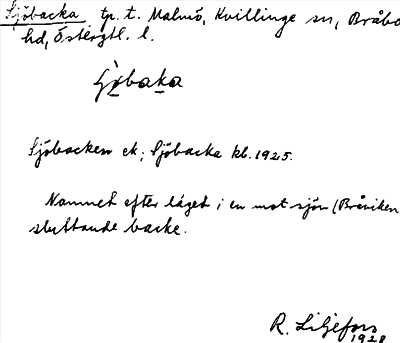 Sjöbacka tp. t. Malmö, Kvillinge sn, Bråbo
hd, Östergtl. l.
Sjöbacken ek; Sjöbacka kb. 1925.
Namnet efter läget i en mot sjön (Bråviken
sluttande backe.
R. Liljefors
1928